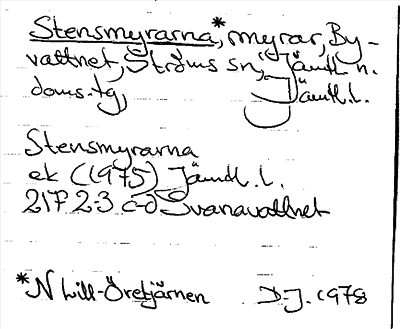 Stensmyrarna,* myrar, By-
vattnet, Ströms sn, Jämtl n.
doms.tg, Jämtl.l.
Stensmyrarna
ek (1975) Jämtl.l.
21F 2-3 c-d Svanavattnet
*N Lill-Öretjärnen D.J. 1978